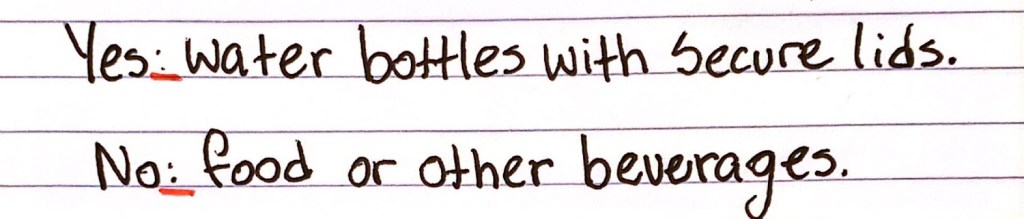 Yes: water bottles with secure lids.
No: food or other beverages.